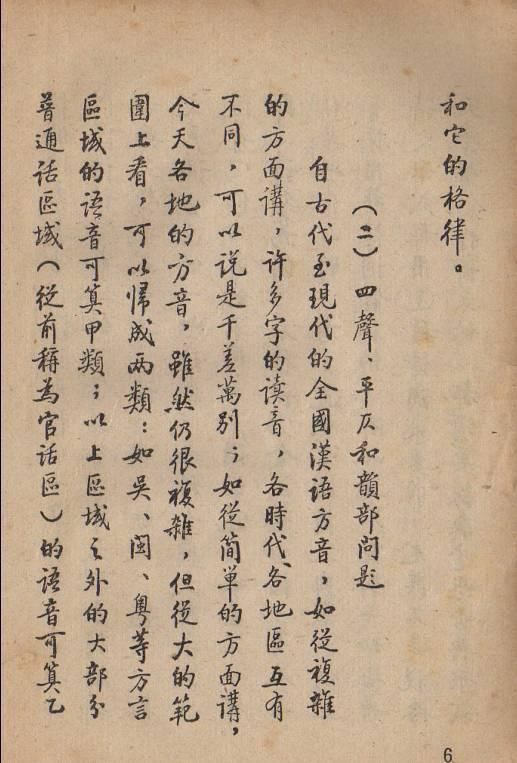 和它的格律。
(二)四聲、平仄和韻部問題
自古代至現代的全國漢語方音,如從複雜
的方面講,許多字的读音,各時代、各地區互有
不同,可以說是千差萬别;如從简單的方面講,
今天各地的方音,雖然仍很複雜,但從大的範
圍上看,可以归成两類:如吴、閩、粤等方言
區域的語音可算甲類;以上區域之外的大部分
普通话區域(從前稱為官話區)的語音可算乙
6